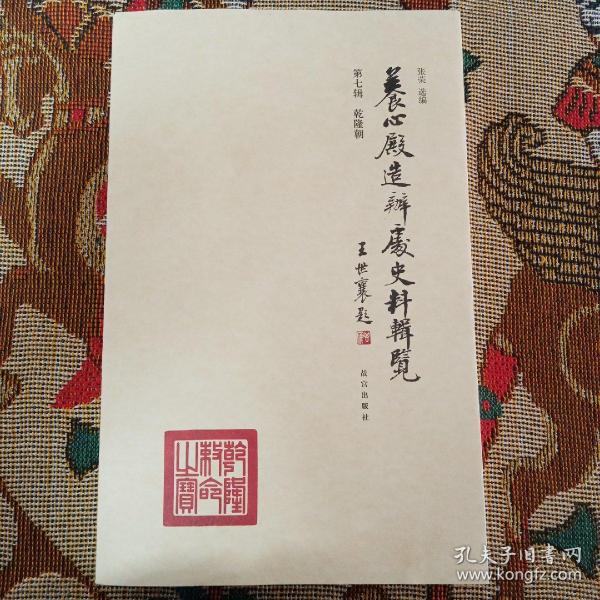 张荣 选编
養心殿造辦處史料輯覽
第七辑 乾隆朝
王世襄题
故宫出版社
乾隆
敕命
之寶
孔夫子旧书网
www.kongfz.com